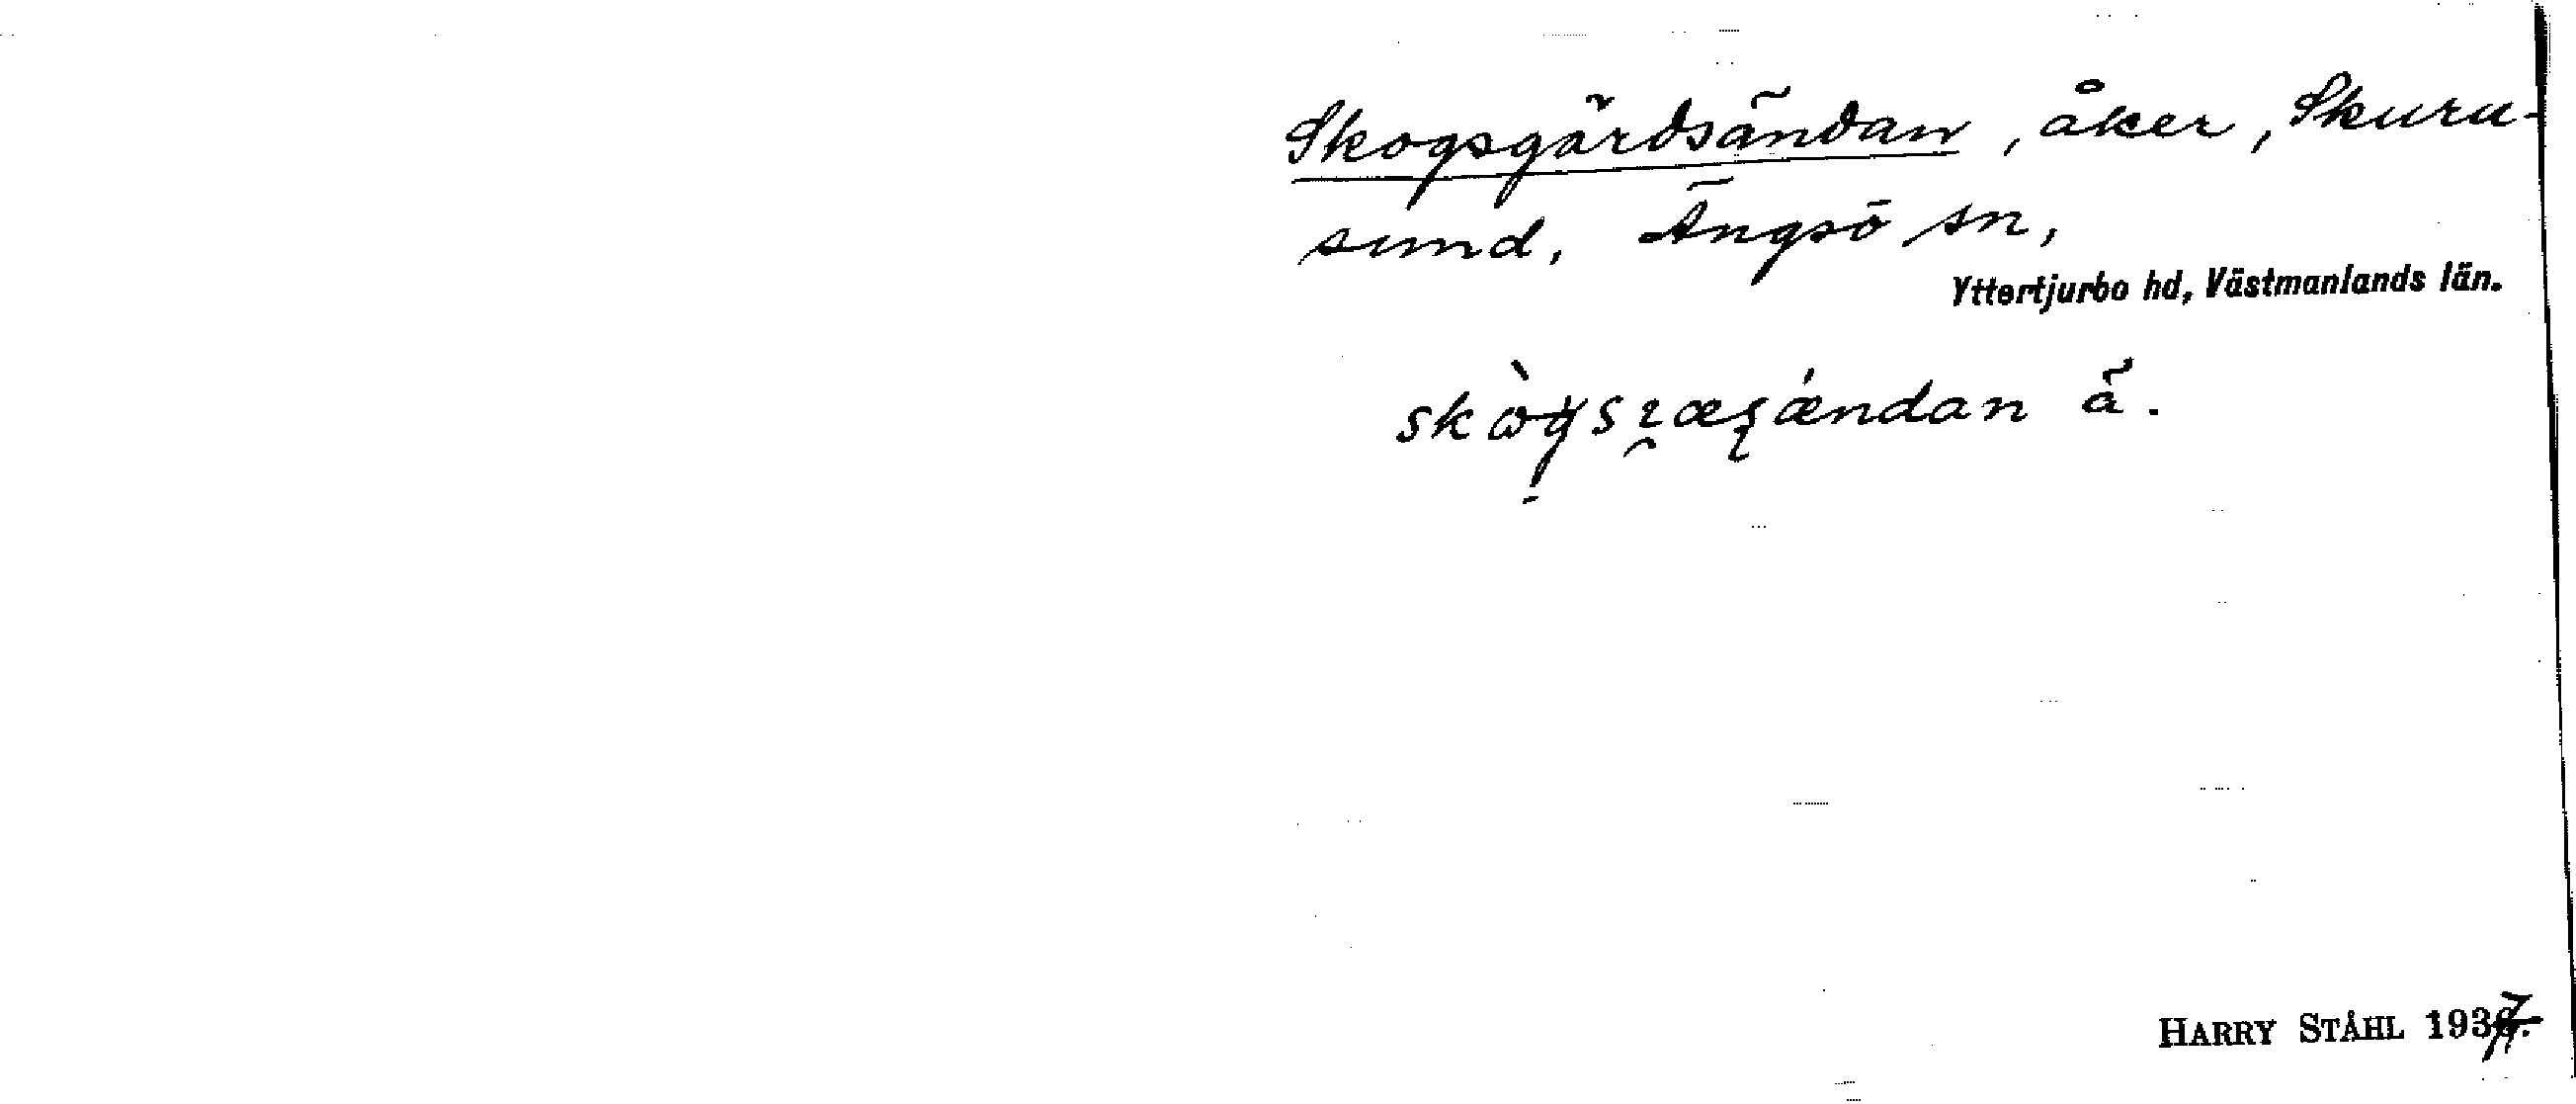 Skogsgärdsändan, åker, Skuru-
sund, Ängsö sn,
Yttertjurbo hd, Västmanlands län.
ä.
HARRY STÅHL 1937.